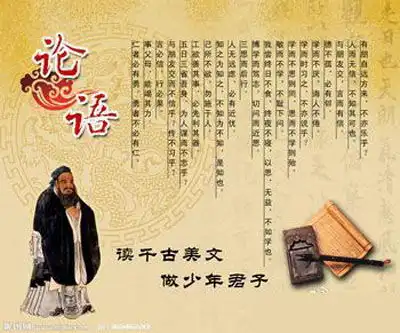 论语
有朋自远方来,不亦乐乎?
人而无信,不知其可也。
与朋友交,言而有信
德不孤,必有邻
学而不厌,诲人不倦。
学而时习之,不亦说乎?
学而不思则罔,思而不学则殆。
敏而不学,不耻下问
我尝终日不食,终夜不寝,以思,无益,不如学也。
博学而笃志,切问而近思。
三思而后行。
人无远虑,必有近忧
知之为知之,不知为不知,是知也。
己所不欲,勿施于人
工欲善其事,必先利其器
五日三省吾身,为人谋而不忠乎?
与朋友交而不信乎,传不习乎?
言必信,行必果
事父母,能竭其力
仁者必有勇,勇者不必有仁。
读千古美文
做少年君子